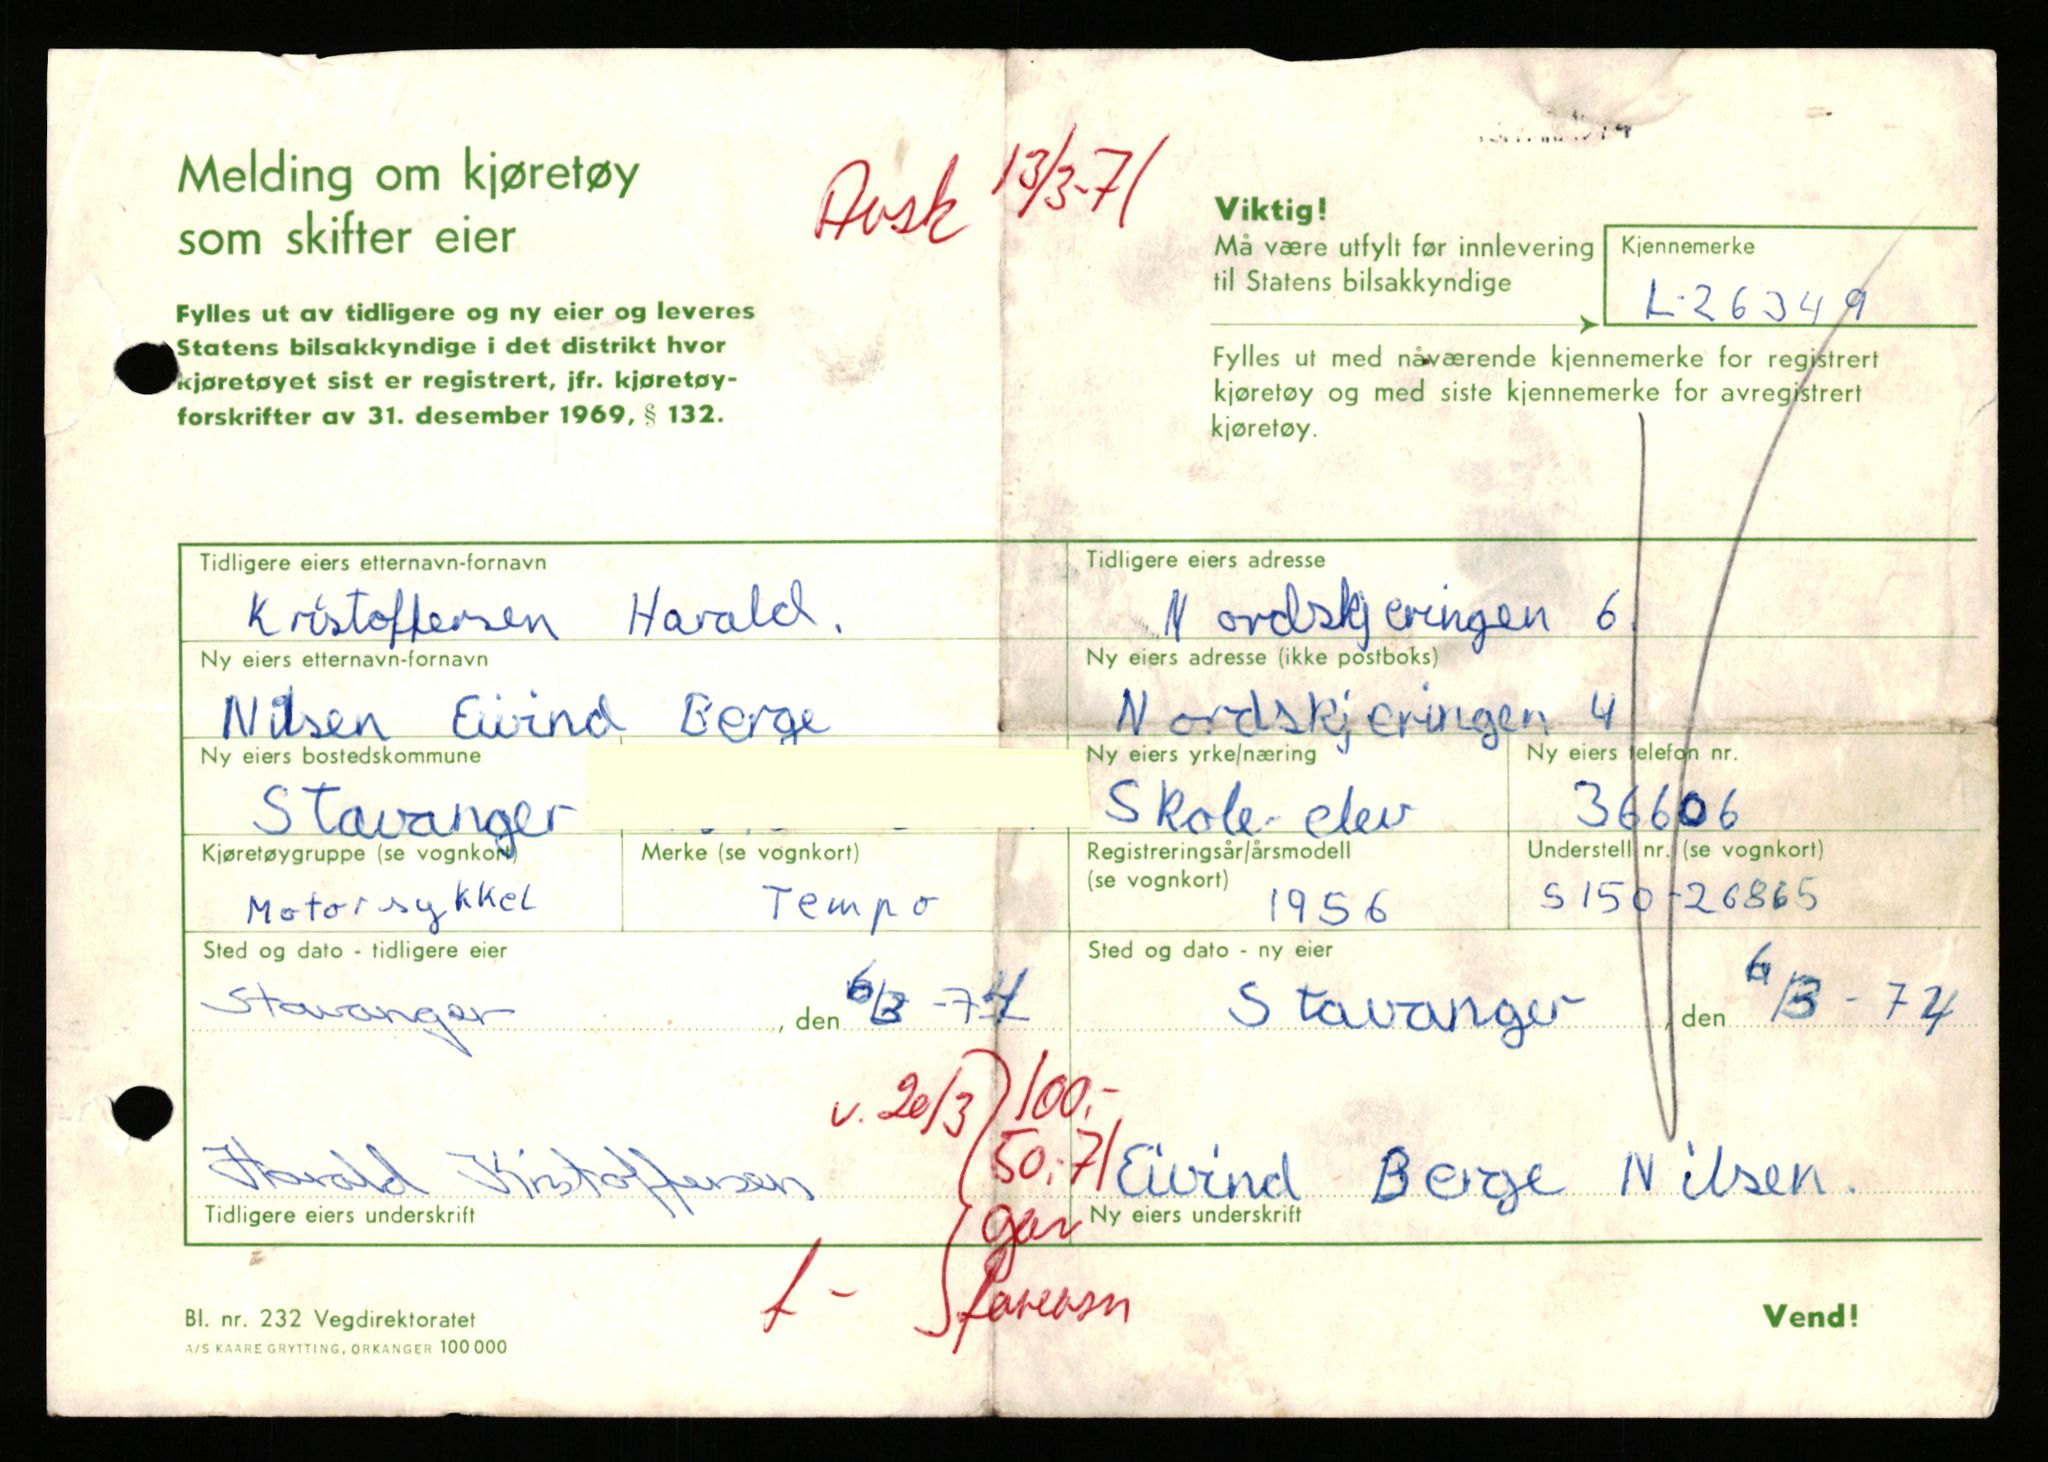 Melding om kjøretøy
som skifter eier
Avsk 13/3-71
Viktig!
Må være utfylt før innlevering
til Statens bilsakkyndige
Kjennemerke
L-26349
Fylles ut av tidligere og ny eier og leveres
Statens bilsakkyndige i det distrikt hvor
kjøretøyet sist er registrert, jfr. kjøretøy-
forskrifter av 31. desember 1969, § 132.
Fylles ut med nåværende kjennemerke for registrert
kjøretøy og med siste kjennemerke for avregistrert
kjøretøy.
Tidligere eiers etternavn-fornavn
Kristoffersen Harald.
Tidligere eiers adresse
Nordskjeringen 6.
Ny eiers etternavn-fornavn
Nilsen Eivind Berge
Ny eiers adresse (ikke postboks)
Nordskjeringen 4
Ny eiers bostedskommune
Stavanger
Ny eiers yrke/næring
Skole-elev
Ny eiers telefon nr.
36606
Kjøretøygruppe (se vognkort)
Motorsykkel
Merke (se vognkort)
Tempo
Registreringsår/årsmodell
(se vognkort)
1956
Understell nr. (se vognkort)
S150-26865
Sted og dato - tidligere eier
Stavanger, den 6/3-71
Sted og dato - ny eier
Stavanger, den 6/3-71
v. 20/3 100,-
50,- 71
Harald Kristoffersen
Tidligere eiers underskrift
Eivind Berge Nilsen.
Ny eiers underskrift
gar
Bl. nr. 232 Vegdirektoratet
A/S KAARE GRYTTING, ORKANGER 100 000
Vend!